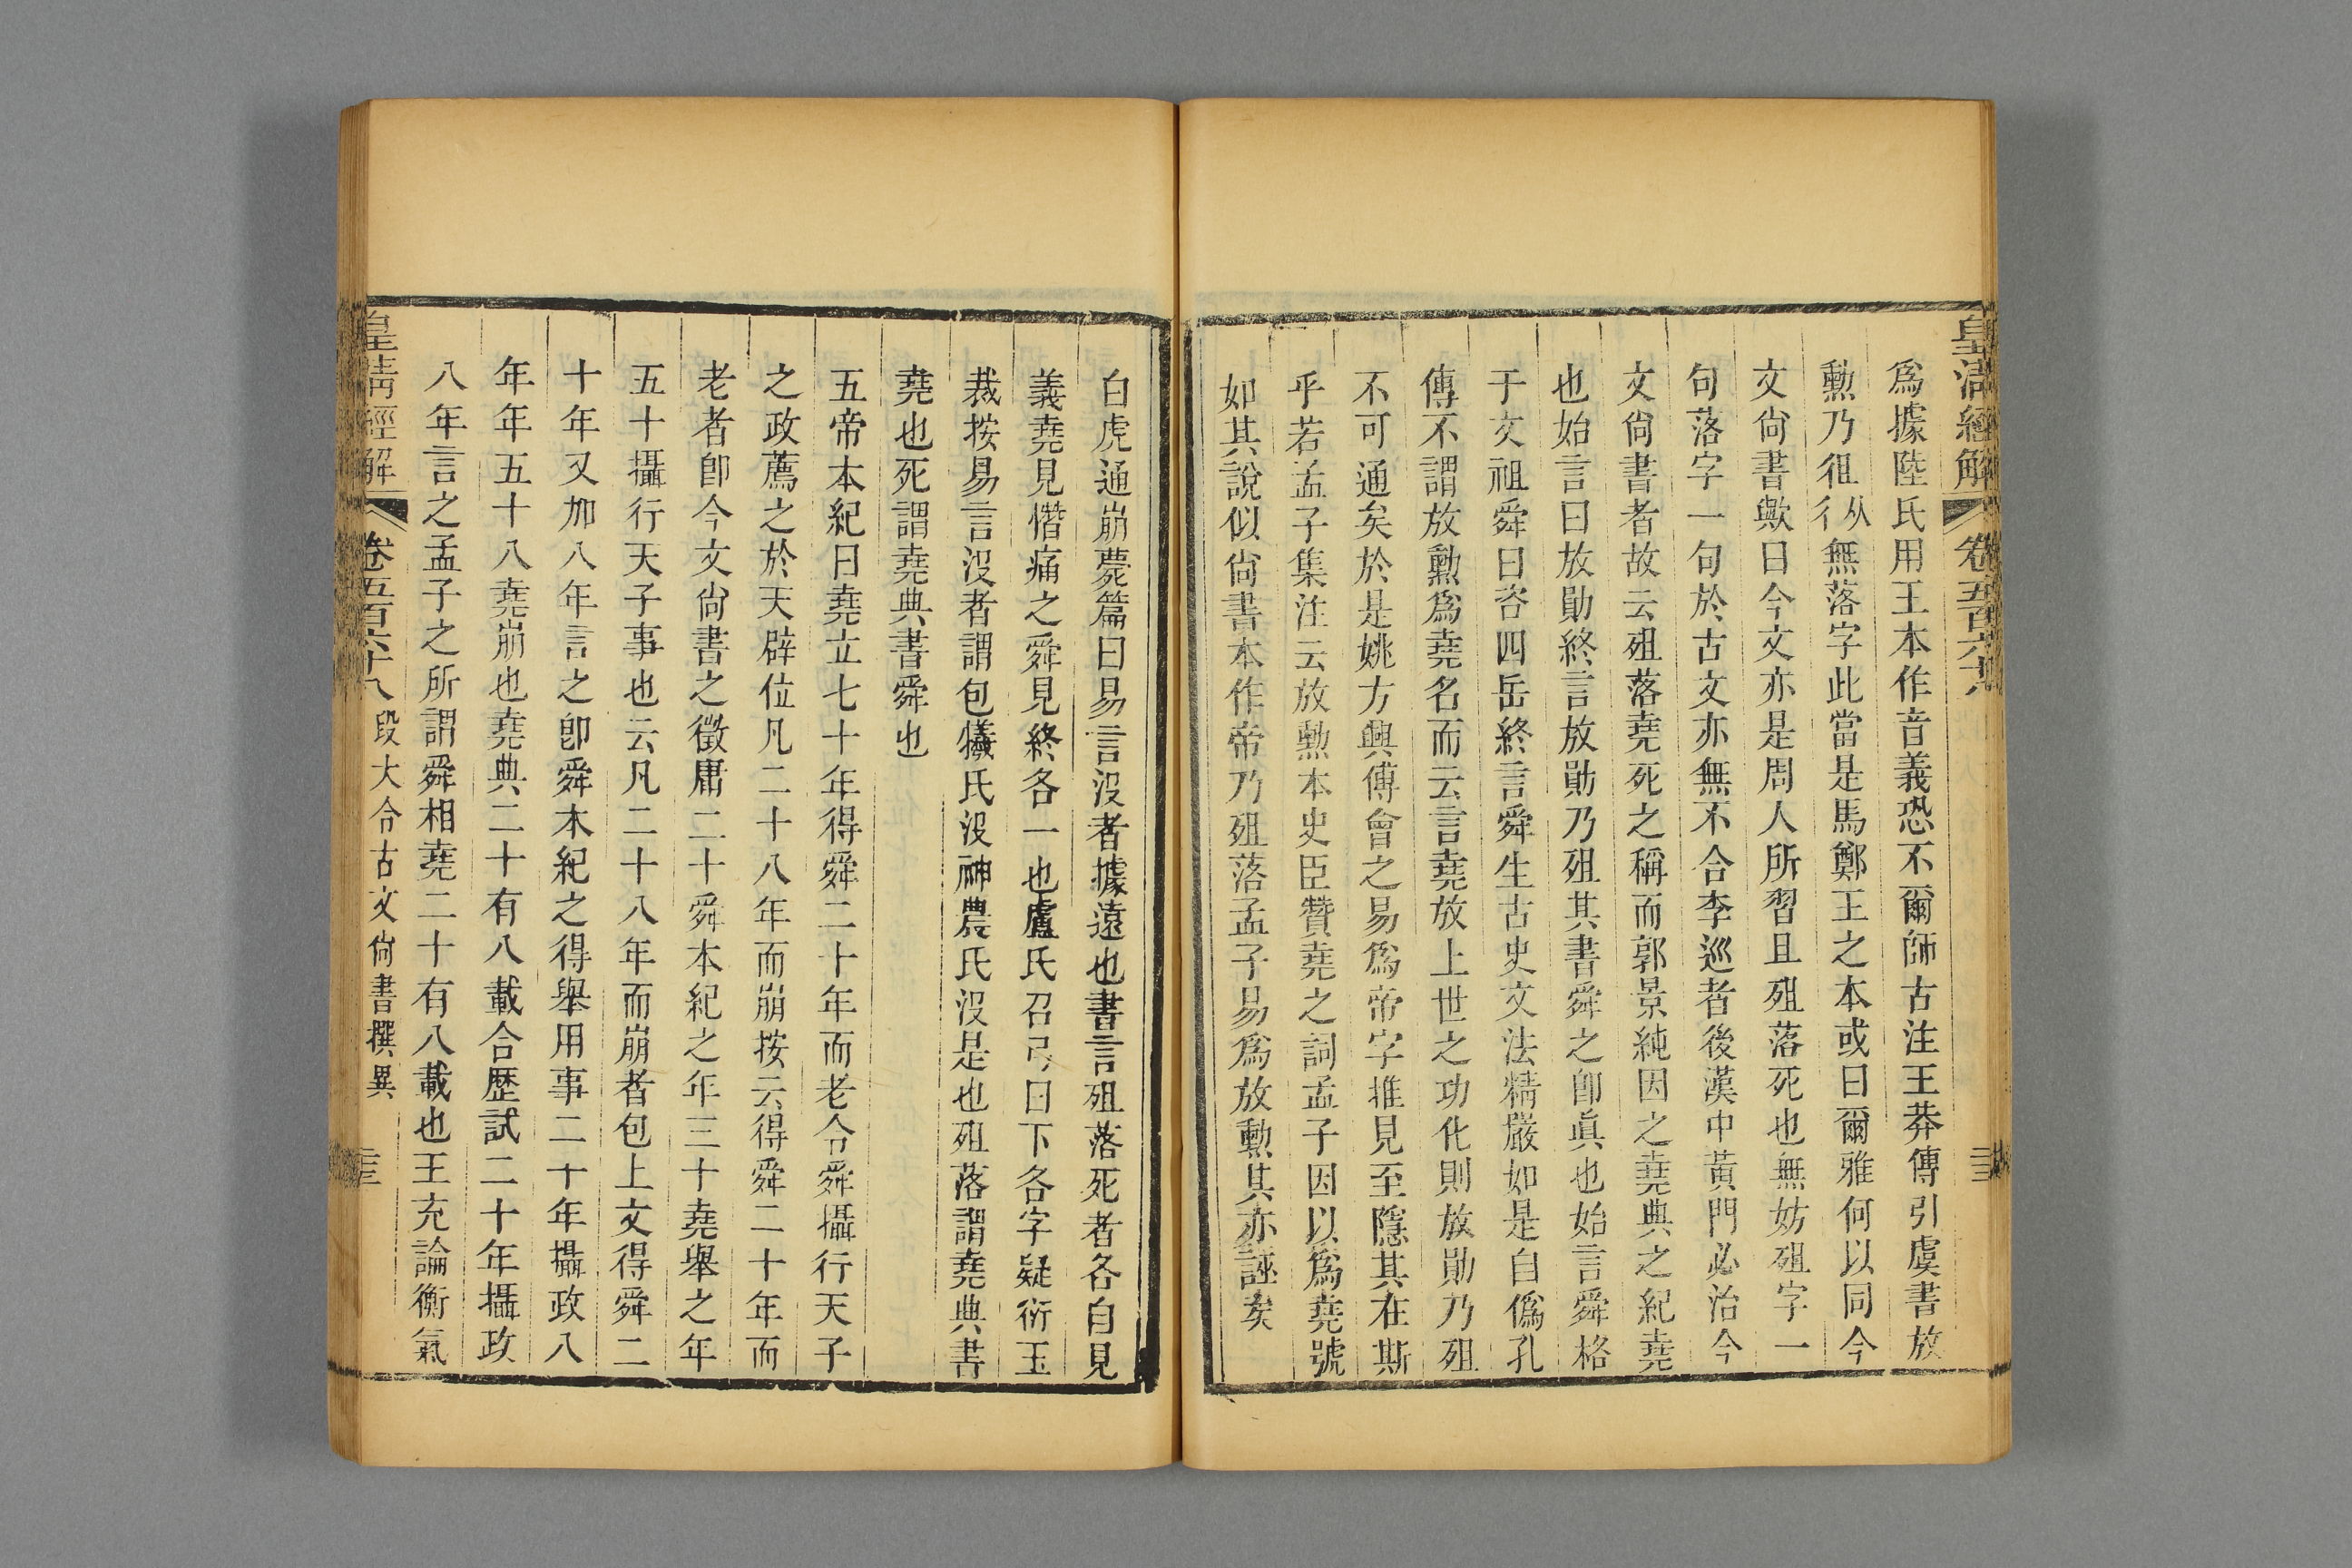 皇清經解
卷五百六十八
爲據陸氏用王本作音義恐不爾師古注王莽傳引虞書放
勳乃徂從彳無落字此當是馬鄭王之本或曰爾雅何以同今
文尙書歟曰今文亦是周人所習且殂落死也無妨殂字一
句落字一句於古文亦無不合李巡者後漢中黃門必治今
文尙書者故云殂落堯死之稱而郭景純因之堯典之紀堯
也始言曰放勛終言放勛乃殂其書舜之卽眞也始言舜格
于文祖舜曰咨四岳終言舜生古史文法精嚴如是自僞孔
傳不謂放勳爲堯名而云言堯放上世之功化則放勛乃殂
不可通矣於是姚方興傅會之易爲帝字推見至隱其在斯
乎若孟子集注云放勳本史臣贊堯之詞孟子因以爲堯號
如其說似尙書本作帝乃殂落孟子易爲放勳其亦誣矣
白虎通崩薨篇曰易言沒者據遠也書言殂落死者各自見
義堯見憯痛之舜見終各一也盧氏召弓曰下各字疑衍玉
裁按易言沒者謂包犧氏沒神農氏沒是也殂落謂堯典書
堯也死謂堯典書舜也
五帝本紀曰堯立七十年得舜二十年而老令舜攝行天子
之政薦之於天辟位凡二十八年而崩按云得舜二十年而
老者卽今文尙書之徵庸二十舜本紀之年三十堯舉之年
五十攝行天子事也云凡二十八年而崩者包上文得舜二
十年又加八年言之卽舜本紀之得舉用事二十年攝政八
年年五十八堯崩也堯典二十有八載合歷試二十年攝政
八年言之孟子之所謂舜相堯二十有八載也王充論衡氣
皇清經解
卷五百六十八
段大令古文尙書撰異